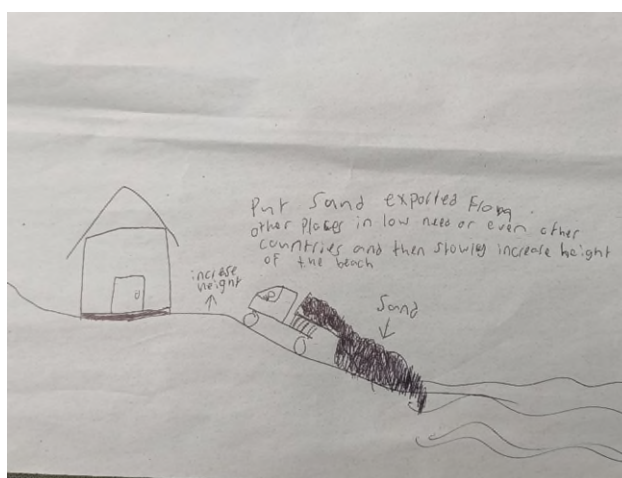 Put Sand exported from
other places in low need or even other
countries and then slowly increase height
of the beach
increse
height
Sand